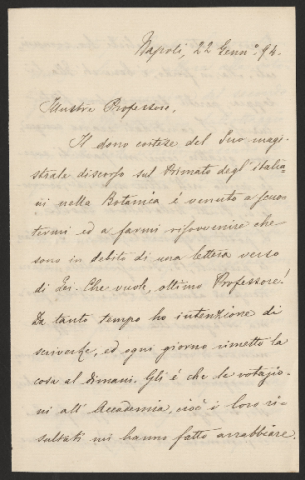 Napoli, 22 Genn.° 94.
Illustre Professore,
Il dono cortese del Suo magi-
strale discorso sul Primato degl'Italia-
ni nella Botanica è venuto a scuo-
termi ed a farmi risovvenire che
sono in debito di una lettera verso
di Lei. Che vuole, ottimo Professore!
Da tanto tempo ho intenzione di
scriverle, ed ogni giorno rimetto la
cosa al dimani. Gli è che le votazio-
ni all'Accademia, cioè i loro ri-
sultati mi hanno fatto arrabbiare.